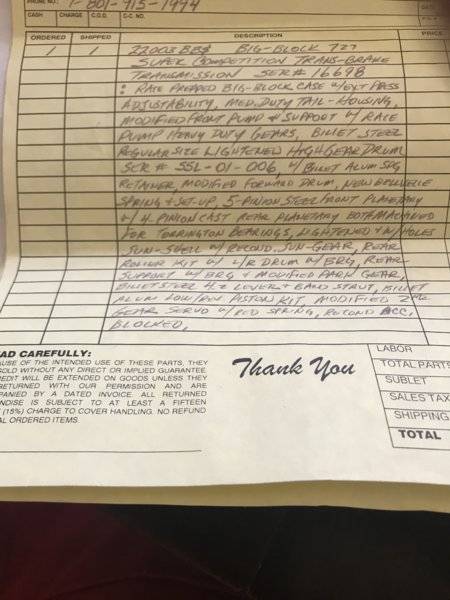 PHONE NO.: 1-801-915-1944
CASH CHARGE C.O.D. C-C. NO.
ORDERED SHIPPED DESCRIPTION PRICE
1 1 22003BBS BIG-BLOCK 727
SUPER COMPETITION TRANS-BRAKE
TRANSMISSION SER# 16698
: RACE PREPPED BIG-BLOCK CASE W/EXT PRESS
ADJUSTABILITY, MED. DUTY TAIL-HOUSING,
MODIFIED FRONT PUMP & SUPPORT W/ RACE
PUMP HEAVY DUTY GEARS, BILLET STEEL
REGULAR SIZE LIGHTENED HIGH GEAR DRUM
SER # SSL-01-006, W/ BILLET ALUM SPG
RETAINER, MODIFIED FORWARD DRUM, NEW BELLEVILLE
SPRING & SET-UP, 5-PINION STEEL FRONT PLANETARY
& 4-PINION CAST REAR PLANETARY BOTH MACHINED
FOR TORRINGTON BEARINGS, LIGHTENED W/HOLES
SUN-SHELL W/ RECOND. SUN-GEAR, REAR
ROLLER KIT W/ L/R DRUM W/ BRG, REAR
SUPPORT W/ BRG & MODIFIED PARK GEAR,
BILLET STEEL 4.2 LEVER & BAND STRUT, BILLET
ALUM LOW/REV PISTON KIT, MODIFIED 2ND
GEAR SERVO W/ RED SPRING, RECOND ACC.
BLOCKED.
AD CAREFULLY:
AUSE OF THE INTENDED USE OF THESE PARTS, THEY
SOLD WITHOUT ANY DIRECT OR IMPLIED GUARANTEE.
EDIT WILL BE EXTENDED ON GOODS UNLESS THEY
RETURNED WITH OUR PERMISSION AND ARE
PANIED BY A DATED INVOICE. ALL RETURNED
NDISE IS SUBJECT TO AT LEAST A FIFTEEN
(15%) CHARGE TO COVER HANDLING. NO REFUND
AL ORDERED ITEMS.
Thank You
LABOR
TOTAL PARTS
SUBLET
SALES TAX
SHIPPING
TOTAL